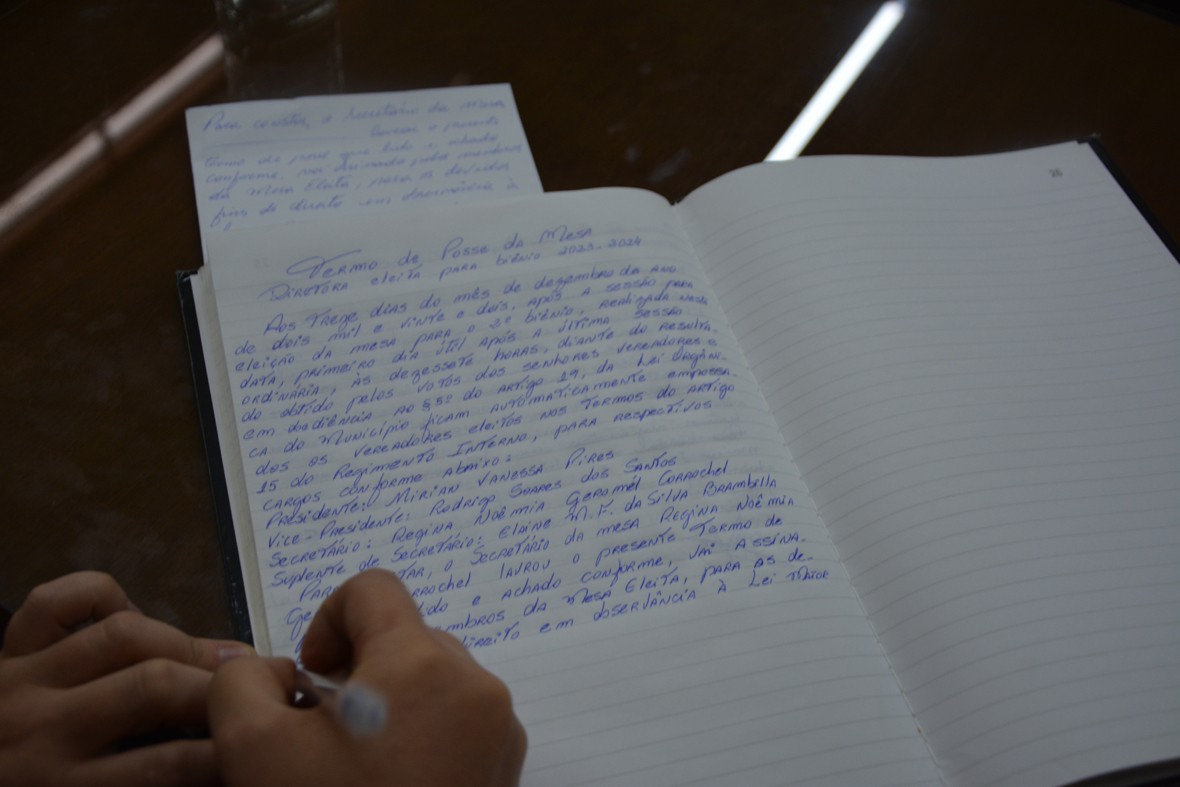 Para constar, o Secretário da Mesa
lavrou o presente
termo de posse que lido e achado
conforme, vai assinado pelos membros
da Mesa Eleita, para os devidos
fins de direito em observância à
26
Termo de Posse da Mesa
Diretora eleita para biênio 2023-2024
Aos treze dias do mês de dezembro de ano
de dois mil e vinte e dois, após a sessão para
eleição da mesa para o 2º biênio, realizada nesta
data, primeiro dia útil após a última sessão
ordinária, às dezessete horas, diante do resulta-
do obtido pelos votos dos senhores vereadores e
em obediência ao § 8º do artigo 19, da Lei Orgâni-
ca do Município ficam automaticamente empossa-
dos os vereadores eleitos nos termos do artigo
15 do Regimento Interno, para respectivos
cargos conforme abaixo:
Presidente: Mirian Vanessa Pires
Vice-Presidente: Rodrigo Soares dos Santos
Secretário: Regina Noêmia Geromél Corrochel
Suplente de Secretário: Elaine M. F. da Silva Brambilla
Para tar, o Secretário da mesa Regina Noêmia
Ge rrochel lavrou o presente Termo de
ido e achado conforme, vai assina-
mbros da Mesa Eleita, para as de-
direito em observância à Lei Maior